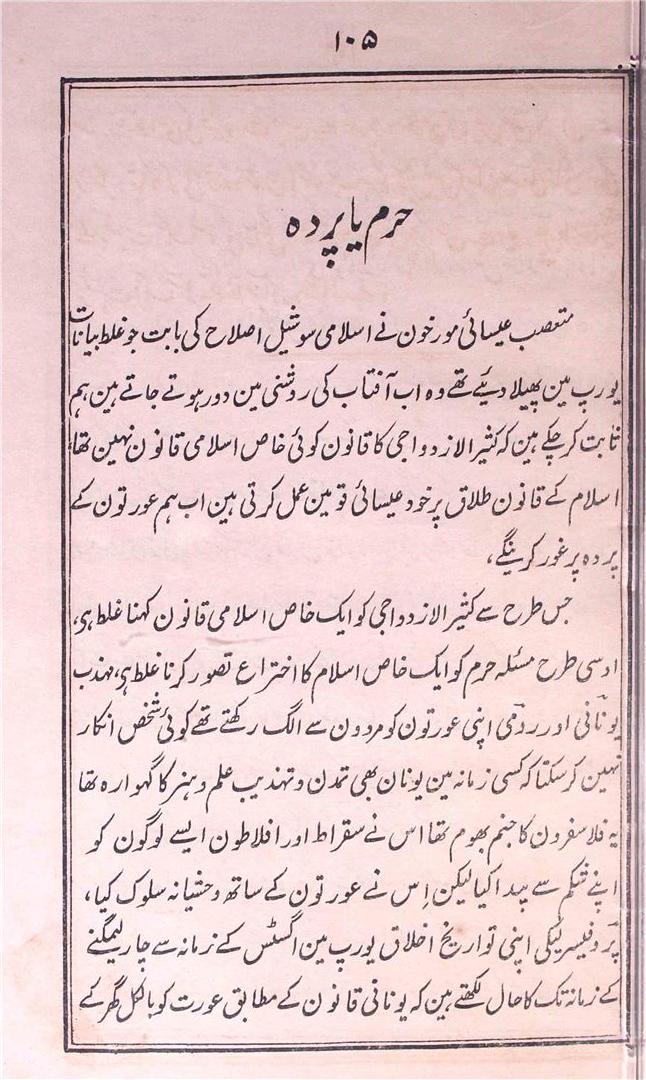 ۱۰۵
حرم یا پردہ
متعصب عیسائی مورخون نے اسلامی سوشیل اصلاح کی بابت جو غلط بیانات
یورپ مین پھیلا دیئے تھے وہ اب آفتاب کی روشنی مین دور ہوتے جاتے ہین ہم
ثابت کر چکے ہین کہ کثیر الازدواجی کا قانون کوئی خاص اسلامی قانون نہین تھا
اسلام کے قانون طلاق پر خود عیسائی قومین عمل کرتی ہین اب ہم عورتون کے
پردہ پر غور کرینگے،
جس طرح سے کثیر الازدواجی کو ایک خاص اسلامی قانون کہنا غلط ہی،
اوسی طرح مسئلہ حرم کو ایک خاص اسلام کا اختراع تصور کرنا غلط ہی، مہذب
یونانی اور رومی اپنی عورتون کو مردون سے الگ رکھتے تھے کوئی شخص انکار
نہین کر سکتا کہ کسی زمانہ مین یونان بھی تمدن و تہذیب علم و ہنر کا گہوارہ تھا
یہ فلاسفرون کا جنم بھوم تھا اس نے سقراط اور افلاطون ایسے لوگون کو
اپنے شکم سے پیدا کیا لیکن اِس نے عورتون کے ساتھ وحشیانہ سلوک کیا،
پروفیسر لیکی اپنی تواریخ اخلاق یورپ مین اگسٹس کے زمانہ سے چارلیمگنے
کے زمانہ تک کا حال لکھتے ہین کہ یونانی قانون کے مطابق عورت کو بالکل گھر کے